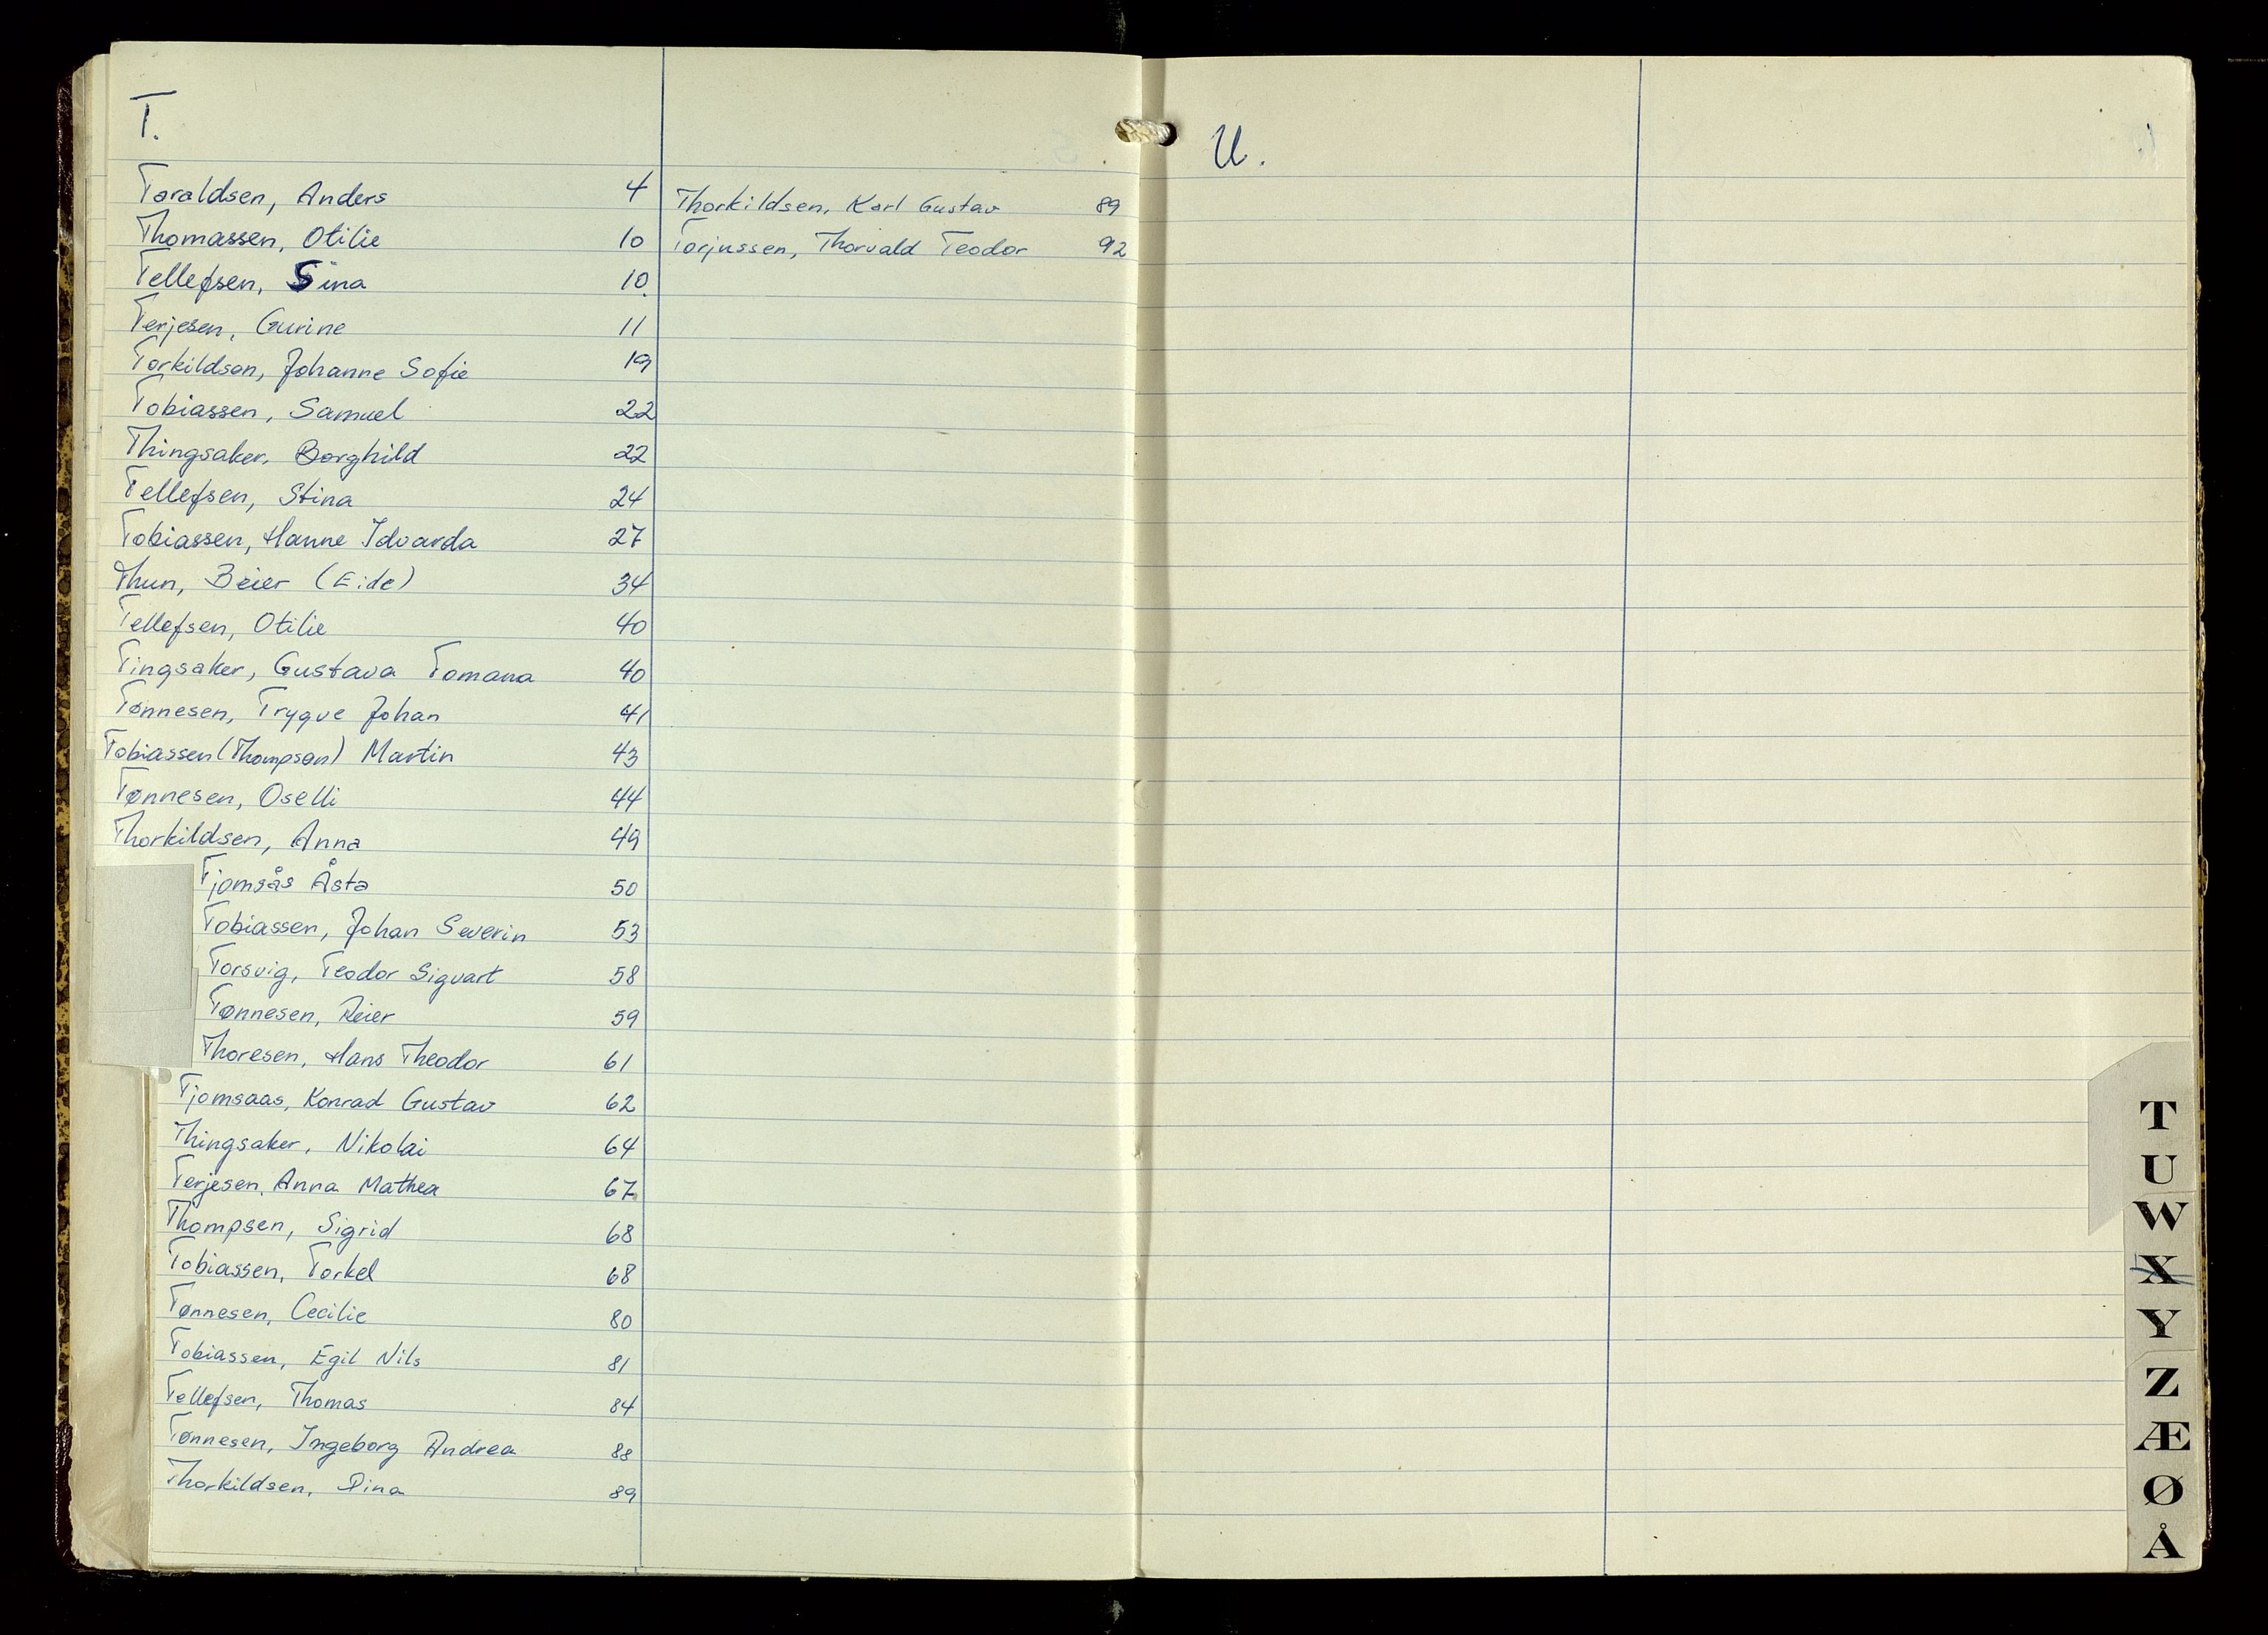 T.
Taraldsen, Anders 4
Thomassen, Otilie 10
Tellefsen, Sina 10.
Terjesen, Gurine 11
Torkildsen, Johanne Sofie 19
Tobiassen, Samuel 22
Thingsaker, Borghild 22
Tellefsen, Stina 24
Tobiassen, Hanne Idvarda 27
Thun, Beier (Eide) 34
Tellefsen, Otilie 40
Tingsaker, Gustava Tomana 40
Tønnesen, Trygve Johan 41
Tobiassen (Thompson) Martin 43
Tønnesen, Oselli 44
Thorkildsen, Anna 49
Tjomsås Åsta 50
Tobiassen, Johan Severin 53
Torsvig, Teodor Sigvart 58
Tønnesen, Reier 59
Thoresen, Hans Theodor 61
Tjomsaas, Konrad Gustav 62
Thingsaker, Nikolai 64
Terjesen, Anna Mathea 67
Thompsen, Sigrid 68
Tobiassen, Torkel 68
Tønnesen, Cecilie 80
Tobiassen, Egil Nils 81
Tellefsen, Thomas 84
Tønnesen, Ingeborg Andrea 88
Thorkildsen, Dina 89
Thorkildsen, Karl Gustav 89
Torjussen, Thorvald Teodor 92
U.
T
U
W
X
Y
Z
Æ
Ø
Å